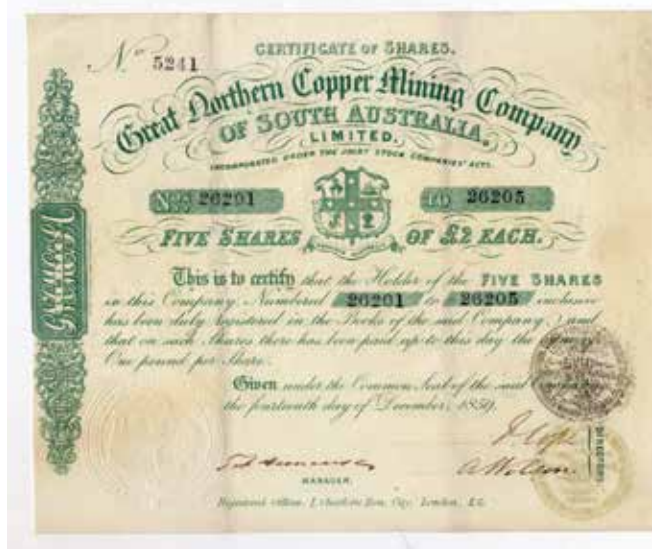 No 5241
CERTIFICATE OF SHARES.
Great Northern Copper Mining Company
OF SOUTH AUSTRALIA,
LIMITED.
INCORPORATED UNDER THE JOINT STOCK COMPANIES' ACTS.
Nos 26201 TO 26205
FIVE SHARES OF £2 EACH.
This is to certify that the Holder of the FIVE SHARES
in this Company, Numbered 26201 to 26205 inclusive
has been duly registered in the Books of the said Company, and
that on such Shares there has been paid up to this day the
One pound per Share.
Given under the Common Seal of the said
the fourteenth day of December, 1859.
MANAGER.
DIRECTORS
Registered Office, 1, Row, City, London, E.C.